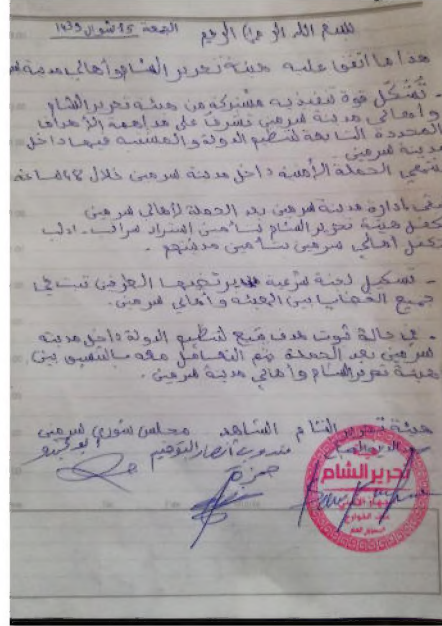 بسم الله الرحمن الرحيم الجمعة 15 شوال 1439
هذا ما اتفقا عليه هيئة تحرير الشام وأهالي مدينة
- تُشكَّل قوة تنفيذية مشتركة من هيئة تحرير الشام
وأهالي مدينة سرمين تشرف على مداهمة الأهداف
المحددة التابعة لتنظيم الدولة و فيها داخل
مدينة سرمين
تنتهي الحملة الأمنية داخل مدينة سرمين خلال 48 ساعة
إدارة مدينة سرمين بعد الحملة لأهالي سرمين
هيئة تحرير الشام تأمين سراقب - ادلب
أهالي سرمين تأمين مدينتهم.
- تشكيل لجنة شرعية الطرفين تبت في
جميع القضايا بين الهيئة وأهالي سرمين.
- في حالة ثبوت هدف يتبع لتنظيم الدولة داخل مدينة
سرمين بعد الحملة يتم التعامل معه بالتنسيق بين
هيئة تحرير الشام وأهالي مدينة سرمين.
هيئة تحرير الشام الشاهد مجلس شورى سرمين
مندوب أنصار التوحيد
حمزة
تحرير الشام